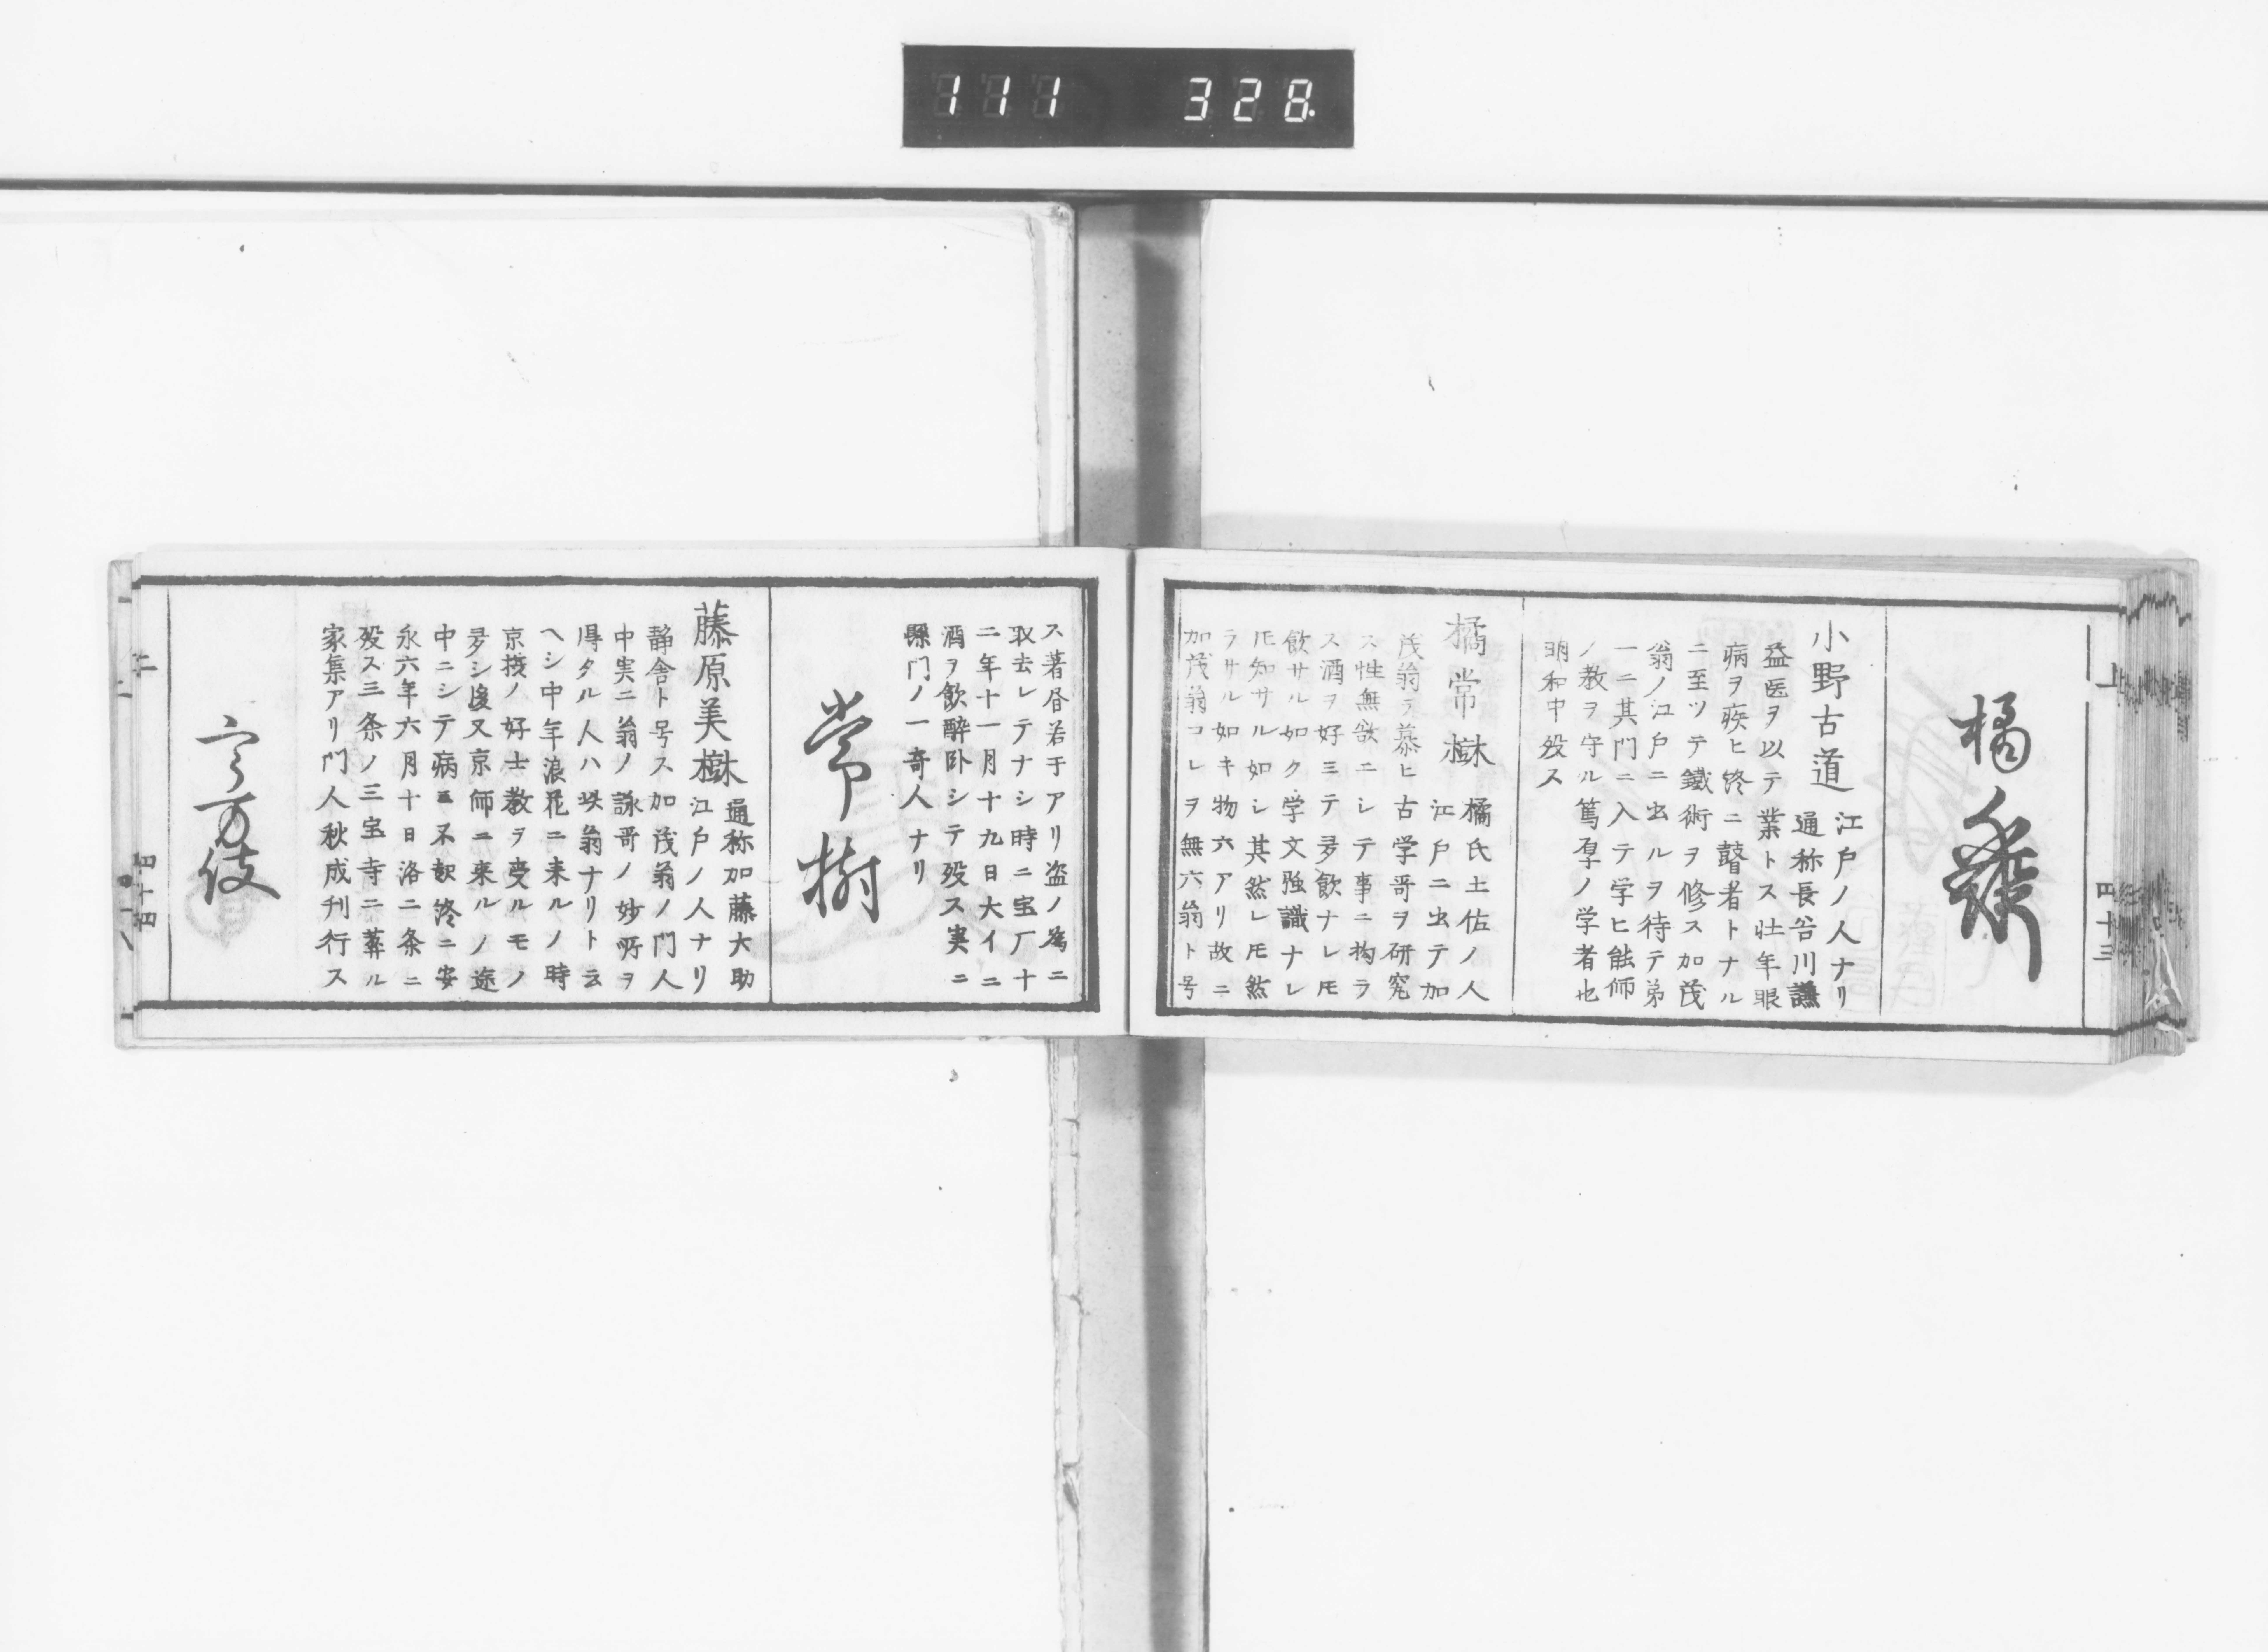 111 328
上
四十三
橘
小野古道
江戸ノ人ナリ
通称長谷川謙
益医ヲ以テ業トス壮年眼
病ヲ疾ヒ終ニ瞽者トナル
ニ至ツテ鐵術ヲ修ス加茂
翁ノ江戸ニ出ルヲ待テ弟
一ニ其門ニ入テ学ヒ能師
ノ教ヲ守ル篤厚ノ学者也
明和中歿ス
橘常樹
橘氏土佐ノ人
江戸ニ出テ加
茂翁ヲ慕ヒ古学哥ヲ研究
ス性無欲ニシテ事ニ拘ラ
ス酒ヲ好ミテ多飲ナレ𪜈
飲サル如ク学文強識ナレ
𪜈知サル如シ其然レ𪜈然
ラサル如キ物六アリ故ニ
加茂翁コレヲ無六翁ト号
ス著昏若干アリ盗ノ為ニ
取去レテナシ時ニ宝厂十
二年十一月十九日大イニ
酒ヲ飲醉臥シテ歿ス実ニ
縣門ノ一奇人ナリ
常樹
藤原美樹
通称加藤大助
江戸ノ人ナリ
静舎ト号ス加茂翁ノ門人
中実ニ翁ノ詠哥ノ妙所ヲ
得タル人ハ此翁ナリト云
ヘシ中年浪花ニ来ルノ時
京摂ノ好士教ヲ受ルモノ
多シ後又京師ニ来ルノ途
中ニシテ病ニ不起終ニ安
永六年六月十日洛二条ニ
歿ス三条ノ三宝寺ニ葬ル
家集アリ門人秋成刊行ス
宇万伎